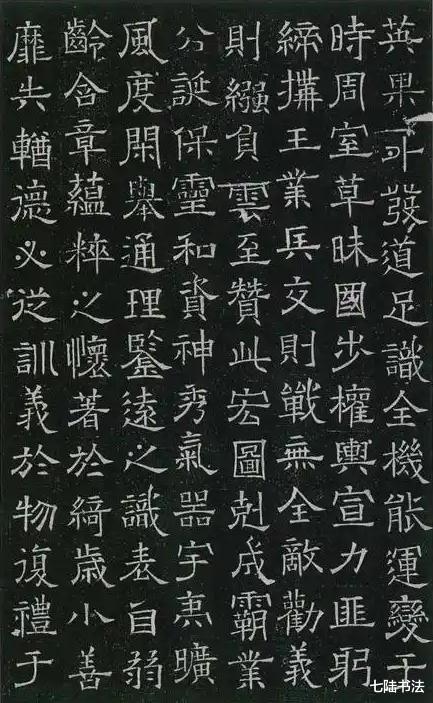 英果可發道足識全機能運變于
時周室草昧國步權輿宣力匪躬
締搆王業兵交則戰無全敵勸義
則繈負雲至贊此宏圖剋成霸業
公誕保靈和資神秀氣器宇曠
風度閑舉通理鑒遠之識表自弱
齡含章蘊粹之懷著於綺歲小善
靡失輶德必從訓義於物復禮于
七陆书法